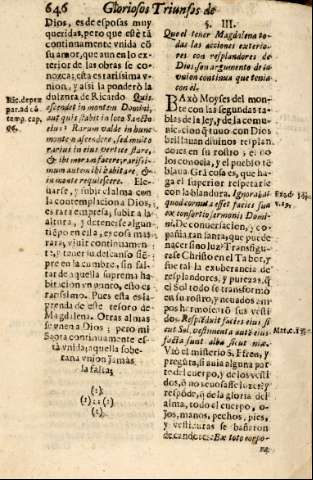 646 Gloriosos Triunfos de
Dios, es de esposas muy
queridas, pero que estè tã
continuamente vnida cõ
su amor, que aun en lo exterior
de las obras se conozca;
esta es rarissima vnion,
y assi la ponderò la
dulzura de Ricardo Quis
ascendit in montem Domini,
aut quis stabit in loco Sancto
eius? Rarum valde in hunc
monte ascendere, sed multo
rarius in eius vertice stare,
& ibi moram facere; rarissimum
autem ibi habitare, &
in monte requiescere. Elevarse,
y subir el alma con
la contemplacion a Dios,
es rara empresa, subir a la
altura, y detenerse algun
tiẽpo en ella, es cosa mas
rara; viuir continuamente,
y tener su descanso siẽpre
en la cumbre, sin faltar
de aquella suprema habitacion
vn punto, esto es
rarissimo. Pues esta es la
prenda de este tesoro de
Magdalena. Otras almas
se vnen a Dios; pero mi
Santa continuamente està
vnida, aquella soberana
vnion jamàs
la falta;
§. III.
Que el tener Magdalena todas
las acciones exteriores
con resplandores de
Dios, son argumento de la
vnion continua que tenia
con èl.
BAxò Moyses del monte
con las segundas tablas
de la ley, y de la comunicaciõ
q̃ tuuo con Dios
brillauan diuinos resplandores
en su rostro; el no
los conocia, y el pueblo tẽblaua.
Grã cosa es, que haga
el superior respetarle
con la blandura. Ignorabat
quod cornuta esset facies sua
ex consortio sermonis Domini.
De conuersacion, y cõpañia
tan santa, que puede
nacer sino luz? Transfigurese
Christo en el Tabor, y
fue tal la exuberancia de
resplandores, y purezas, q̃
el Sol todo se transformò
en su rostro, y neuados ampos
hermoseauan sus vestidos.
Resplenduit facies eius sicut
Sol, vestimenta autẽ eius
facta sunt alba sicut nix.
Viò el misterio S. Efren, y
pregũta, si auia alguna parte
del cuerpo, y de los vestidos,
õ no euosasse luzes? y
respõde, q̃ de la gloria del
alma, todo el cuerpo, ojos,
manos, pechos, pies,
y vestiduras se bañaron
de candores: Ex toto corpo-